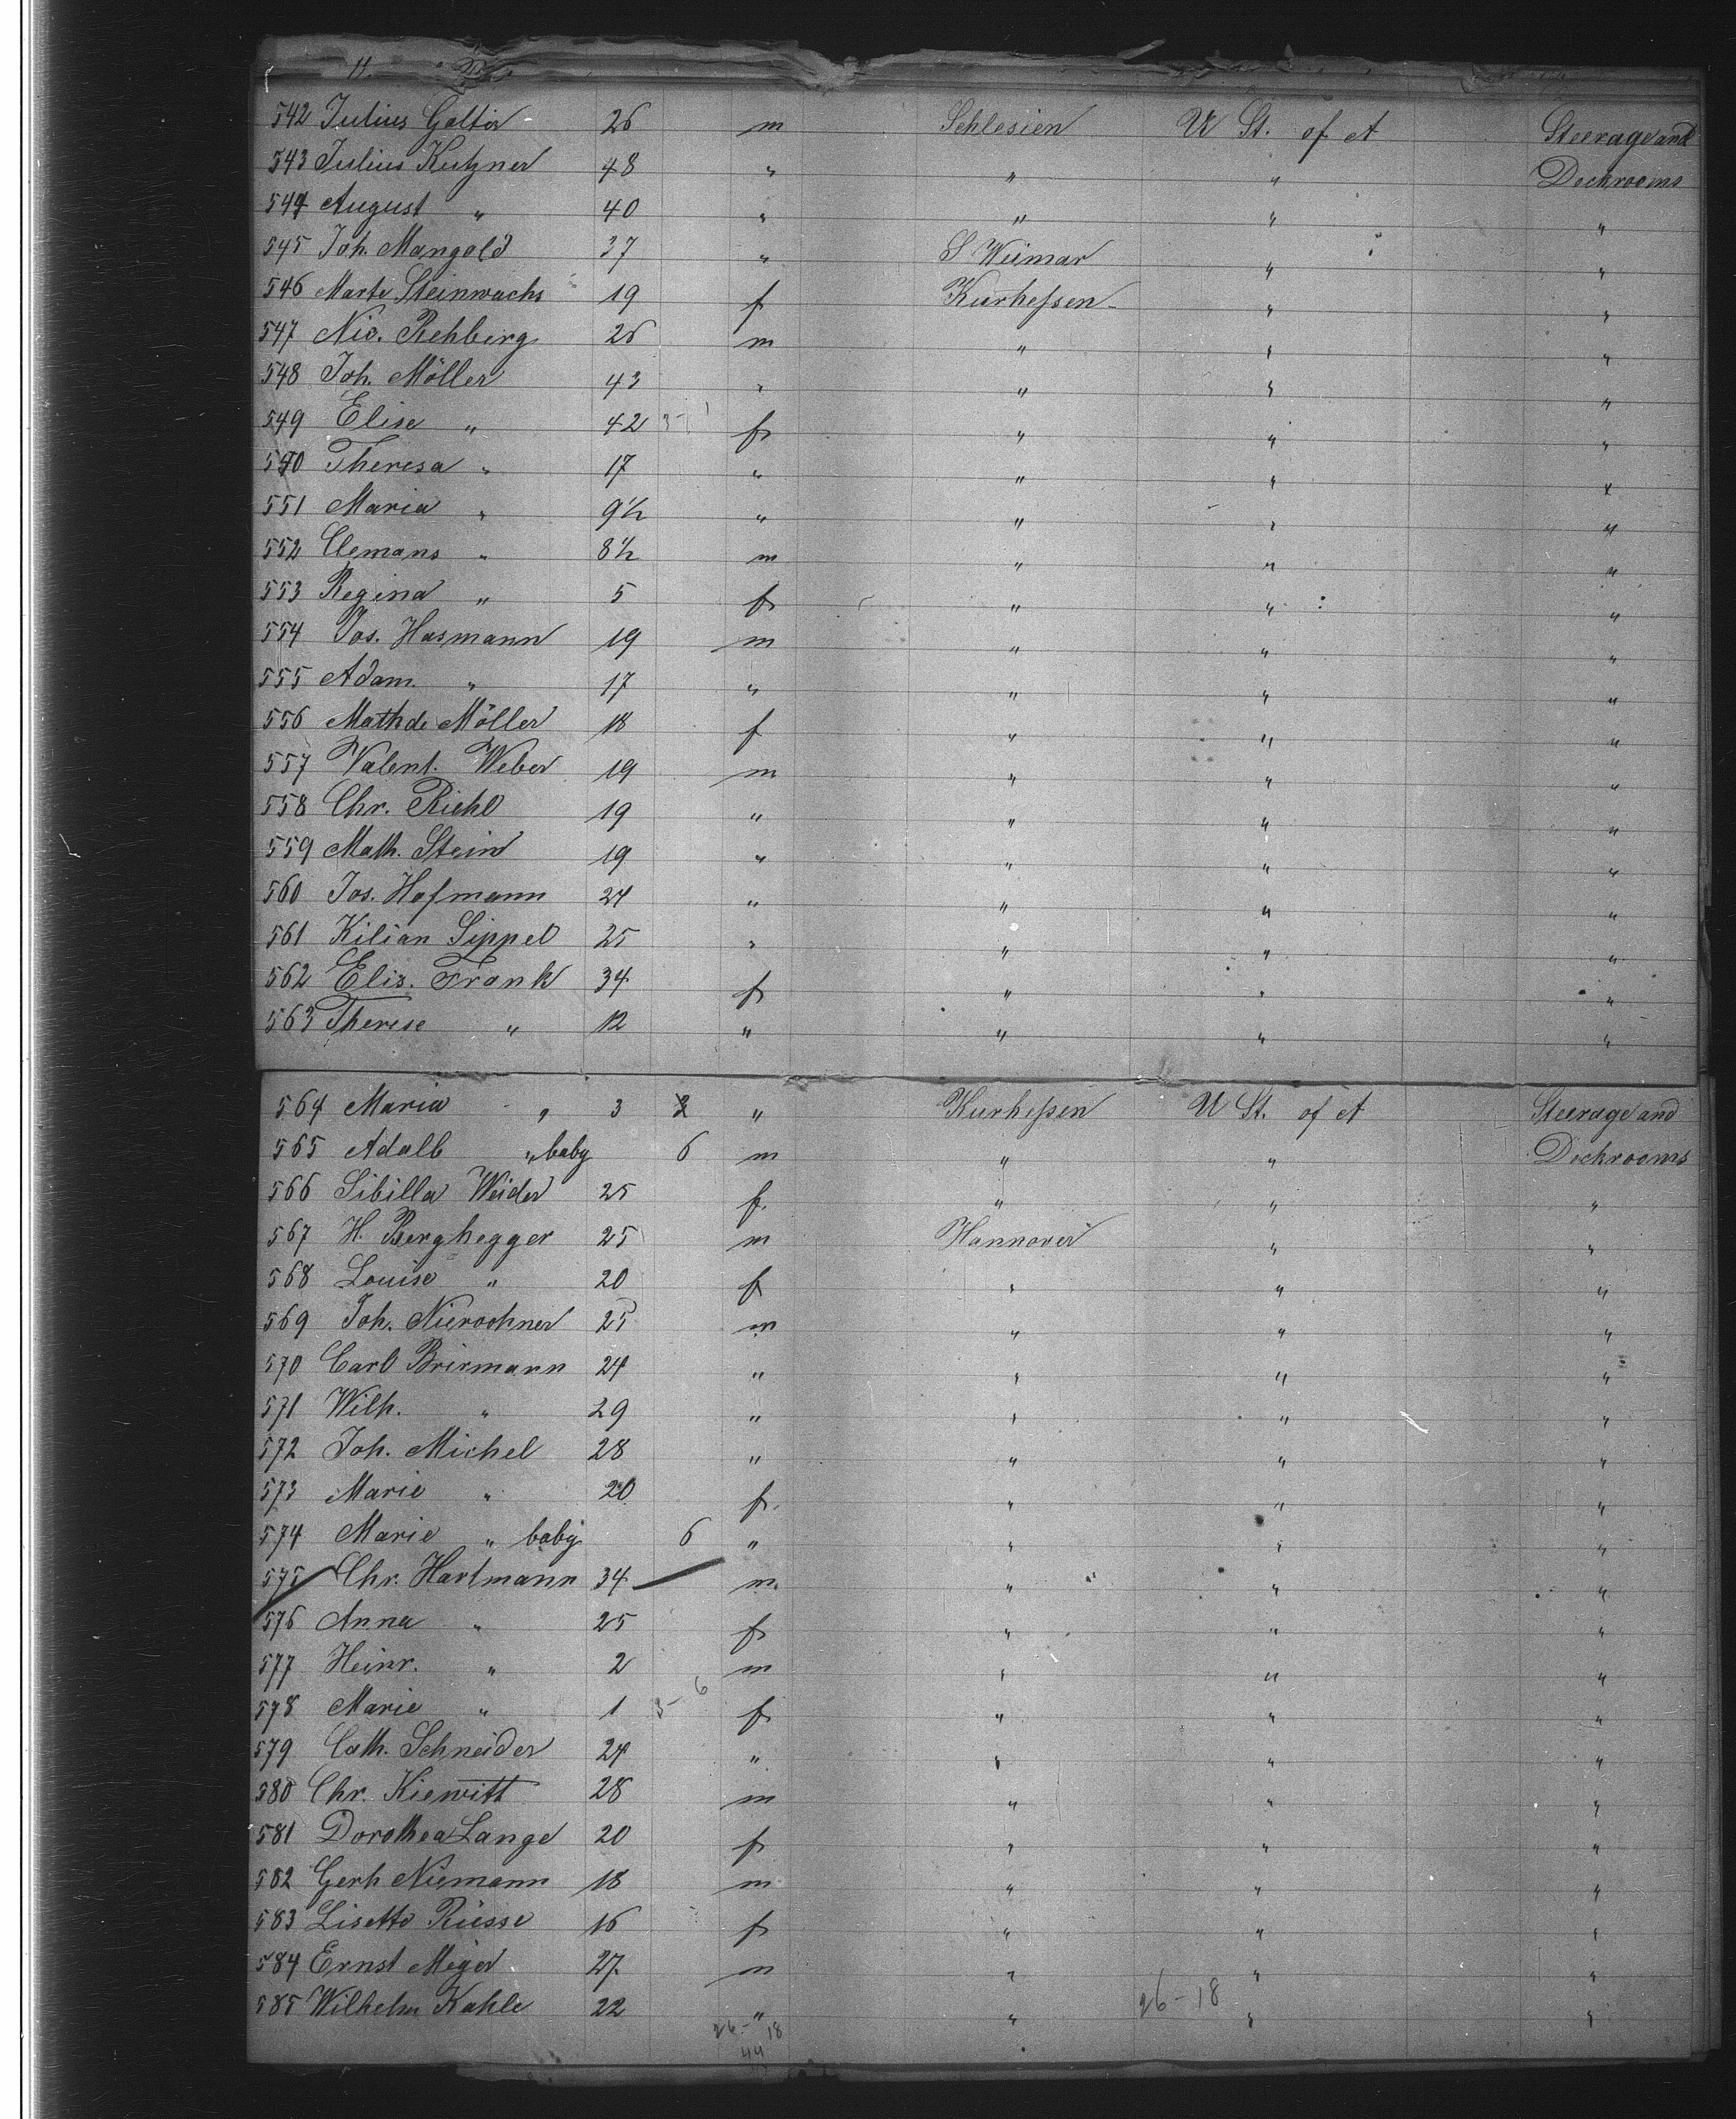 542 Julius Goltir 26 m Schlesien U St. of A Steerage and
543 Julius Kutzner 48 " " " Deckrooms
544 August " 40 " " " "
545 Joh. Mangold 37 " S Weimar " "
546 Marte Steinwachs 19 f Kurheſsen " "
547 Nic. Rehberg 26 m " " "
548 Joh. Möller 43 " " " "
549 Elise " 42 f " " "
550 Theresa " 17 " " " "
551 Maria " 9½ " " " "
552 Clemans " 8½ m " " "
553 Regina " 5 f " " "
554 Jos. Hasmann 19 m " " "
555 Adam " 17 " " " "
556 Mathde Möller 18 f " " "
557 Valent. Weber 19 m " " "
558 Chr. Riehl 19 " " " "
559 Math. Stein 19 " " " "
560 Jos. Hofmann 24 " " " "
561 Kilian Sippel 25 " " " "
562 Elis. Frank 34 f " " "
563 Therese " 12 " " " "
564 Maria " 3 2 " Kurheſsen U St. of A Steerage and
565 Adalb " baby 6 m " " Deckrooms
566 Sibilla Weider 25 f. " " "
567 H. Berghegger 25 m Hannover " "
568 Louise " 20 f " " "
569 Joh. Nierochner 25 m " " "
570 Carl Brirmann 24 " " " "
571 Wilh. " 29 " " " "
572 Joh. Michel 28 " " " "
573 Marie " 20 f. " " "
574 Marie " baby 6 " " " "
575 Chr. Hartmann 34 m. " " "
576 Anna " 25 f " " "
577 Heinr. " 2 m " " "
578 Marie " 1 f " " "
579 Cath. Schneider 24 " " " "
580 Chr. Kiewitt 28 m " " "
581 Dorothea Lange 20 f " " "
582 Gerh Niemann 18 m " " "
583 Lisette Rüsse 16 f " " "
584 Ernst Meyer 27. m " " "
585 Wilhelm Kahle 22 " " " "
26-18
26-18
44